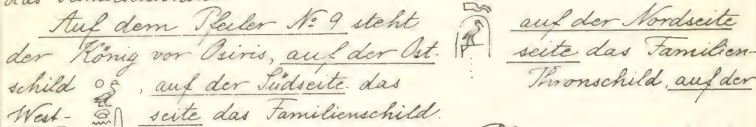 Auf dem Pfeiler № 9 steht auf der Nordseite
der König vor Osiris, auf der Ost- seite das Familien-
schild , auf der Südseite das Thronschild, auf der
West- seite das Familienschild.